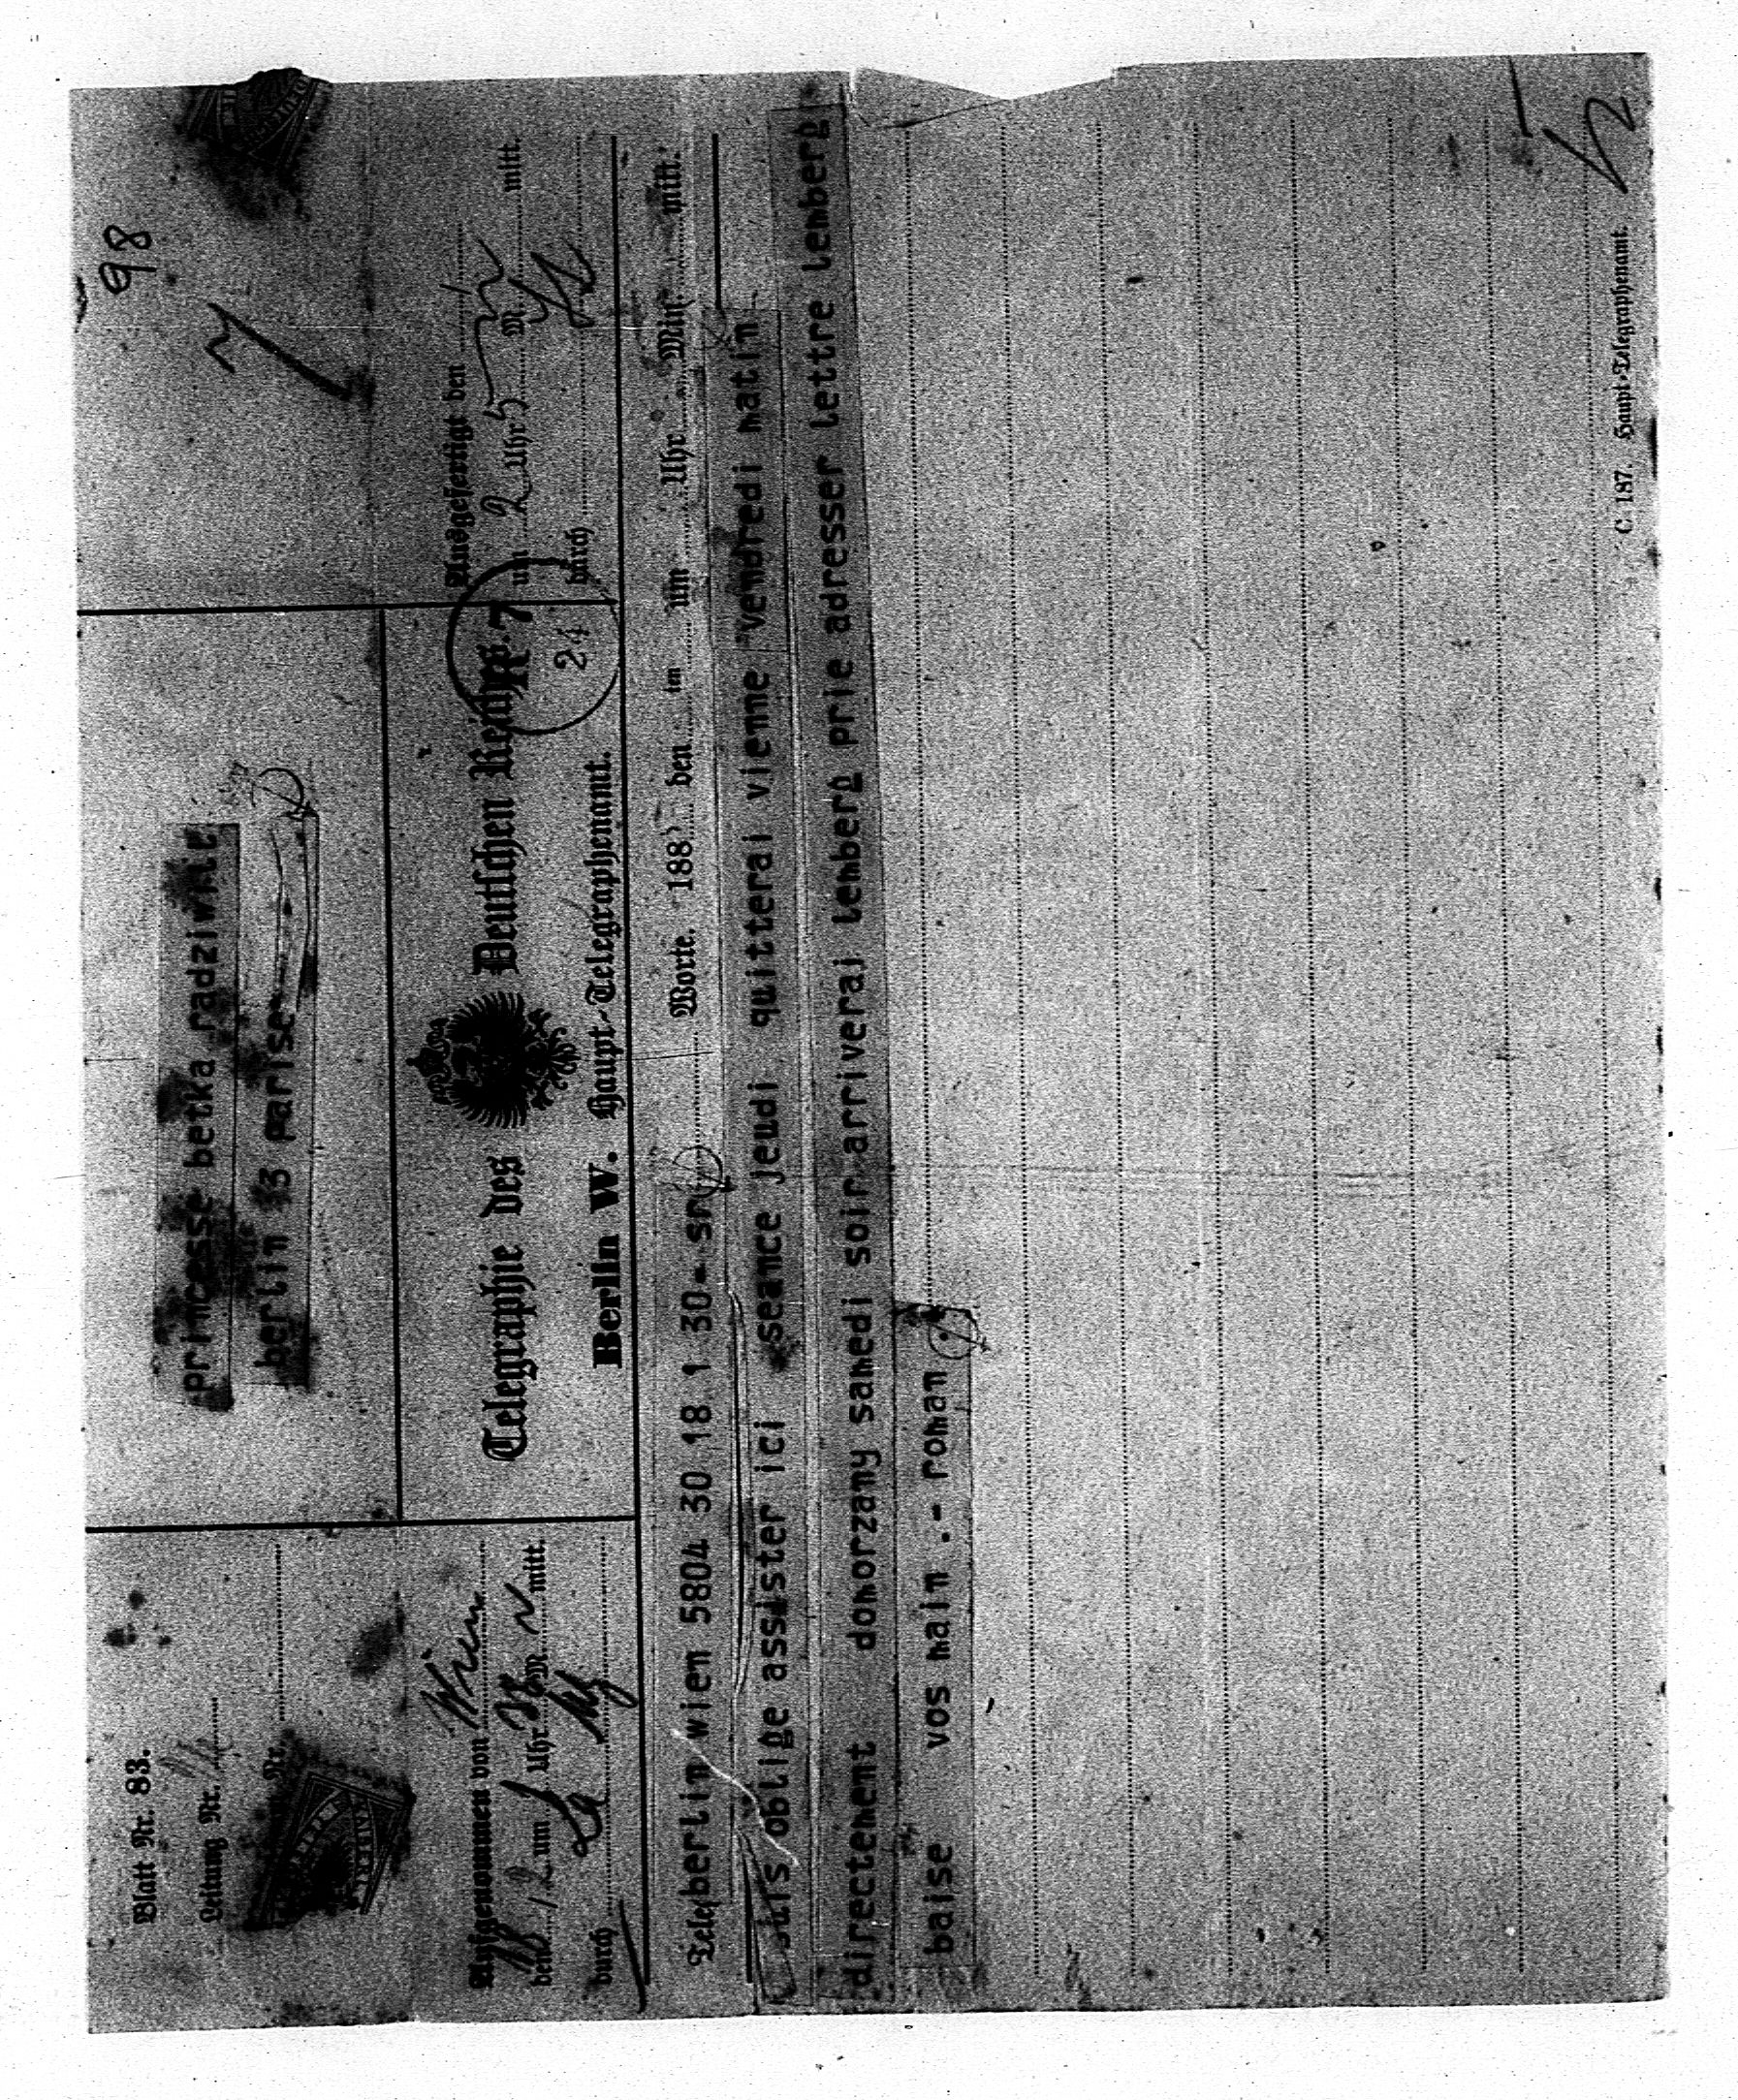 98
Blatt Nr. 83.
Leitung Nr.
Nr.
princesse betka radziwill
berlin 3 parise
Aufgenommen von Wien
den 18/12 um 1 Uhr 38 M. N mitt.
durch
Telegraphie des Deutschen Reiches.
Berlin W. Haupt-Telegraphenamt.
R. 7
24
Ausgefertigt den
um 2 Uhr 5 M. mitt.
durch
Tele berlin wien 5804 30 18 1 30 - sn Worte. 188 den im um Uhr Min mitt.
suis oblige assister ici seance jeudi quitterai vienne vendredi matin
directement domorzany samedi soir arriverai lemberg prie adresser lettre lemberg
baise vos main .- roman
C. 187. Haupt-Telegraphenamt